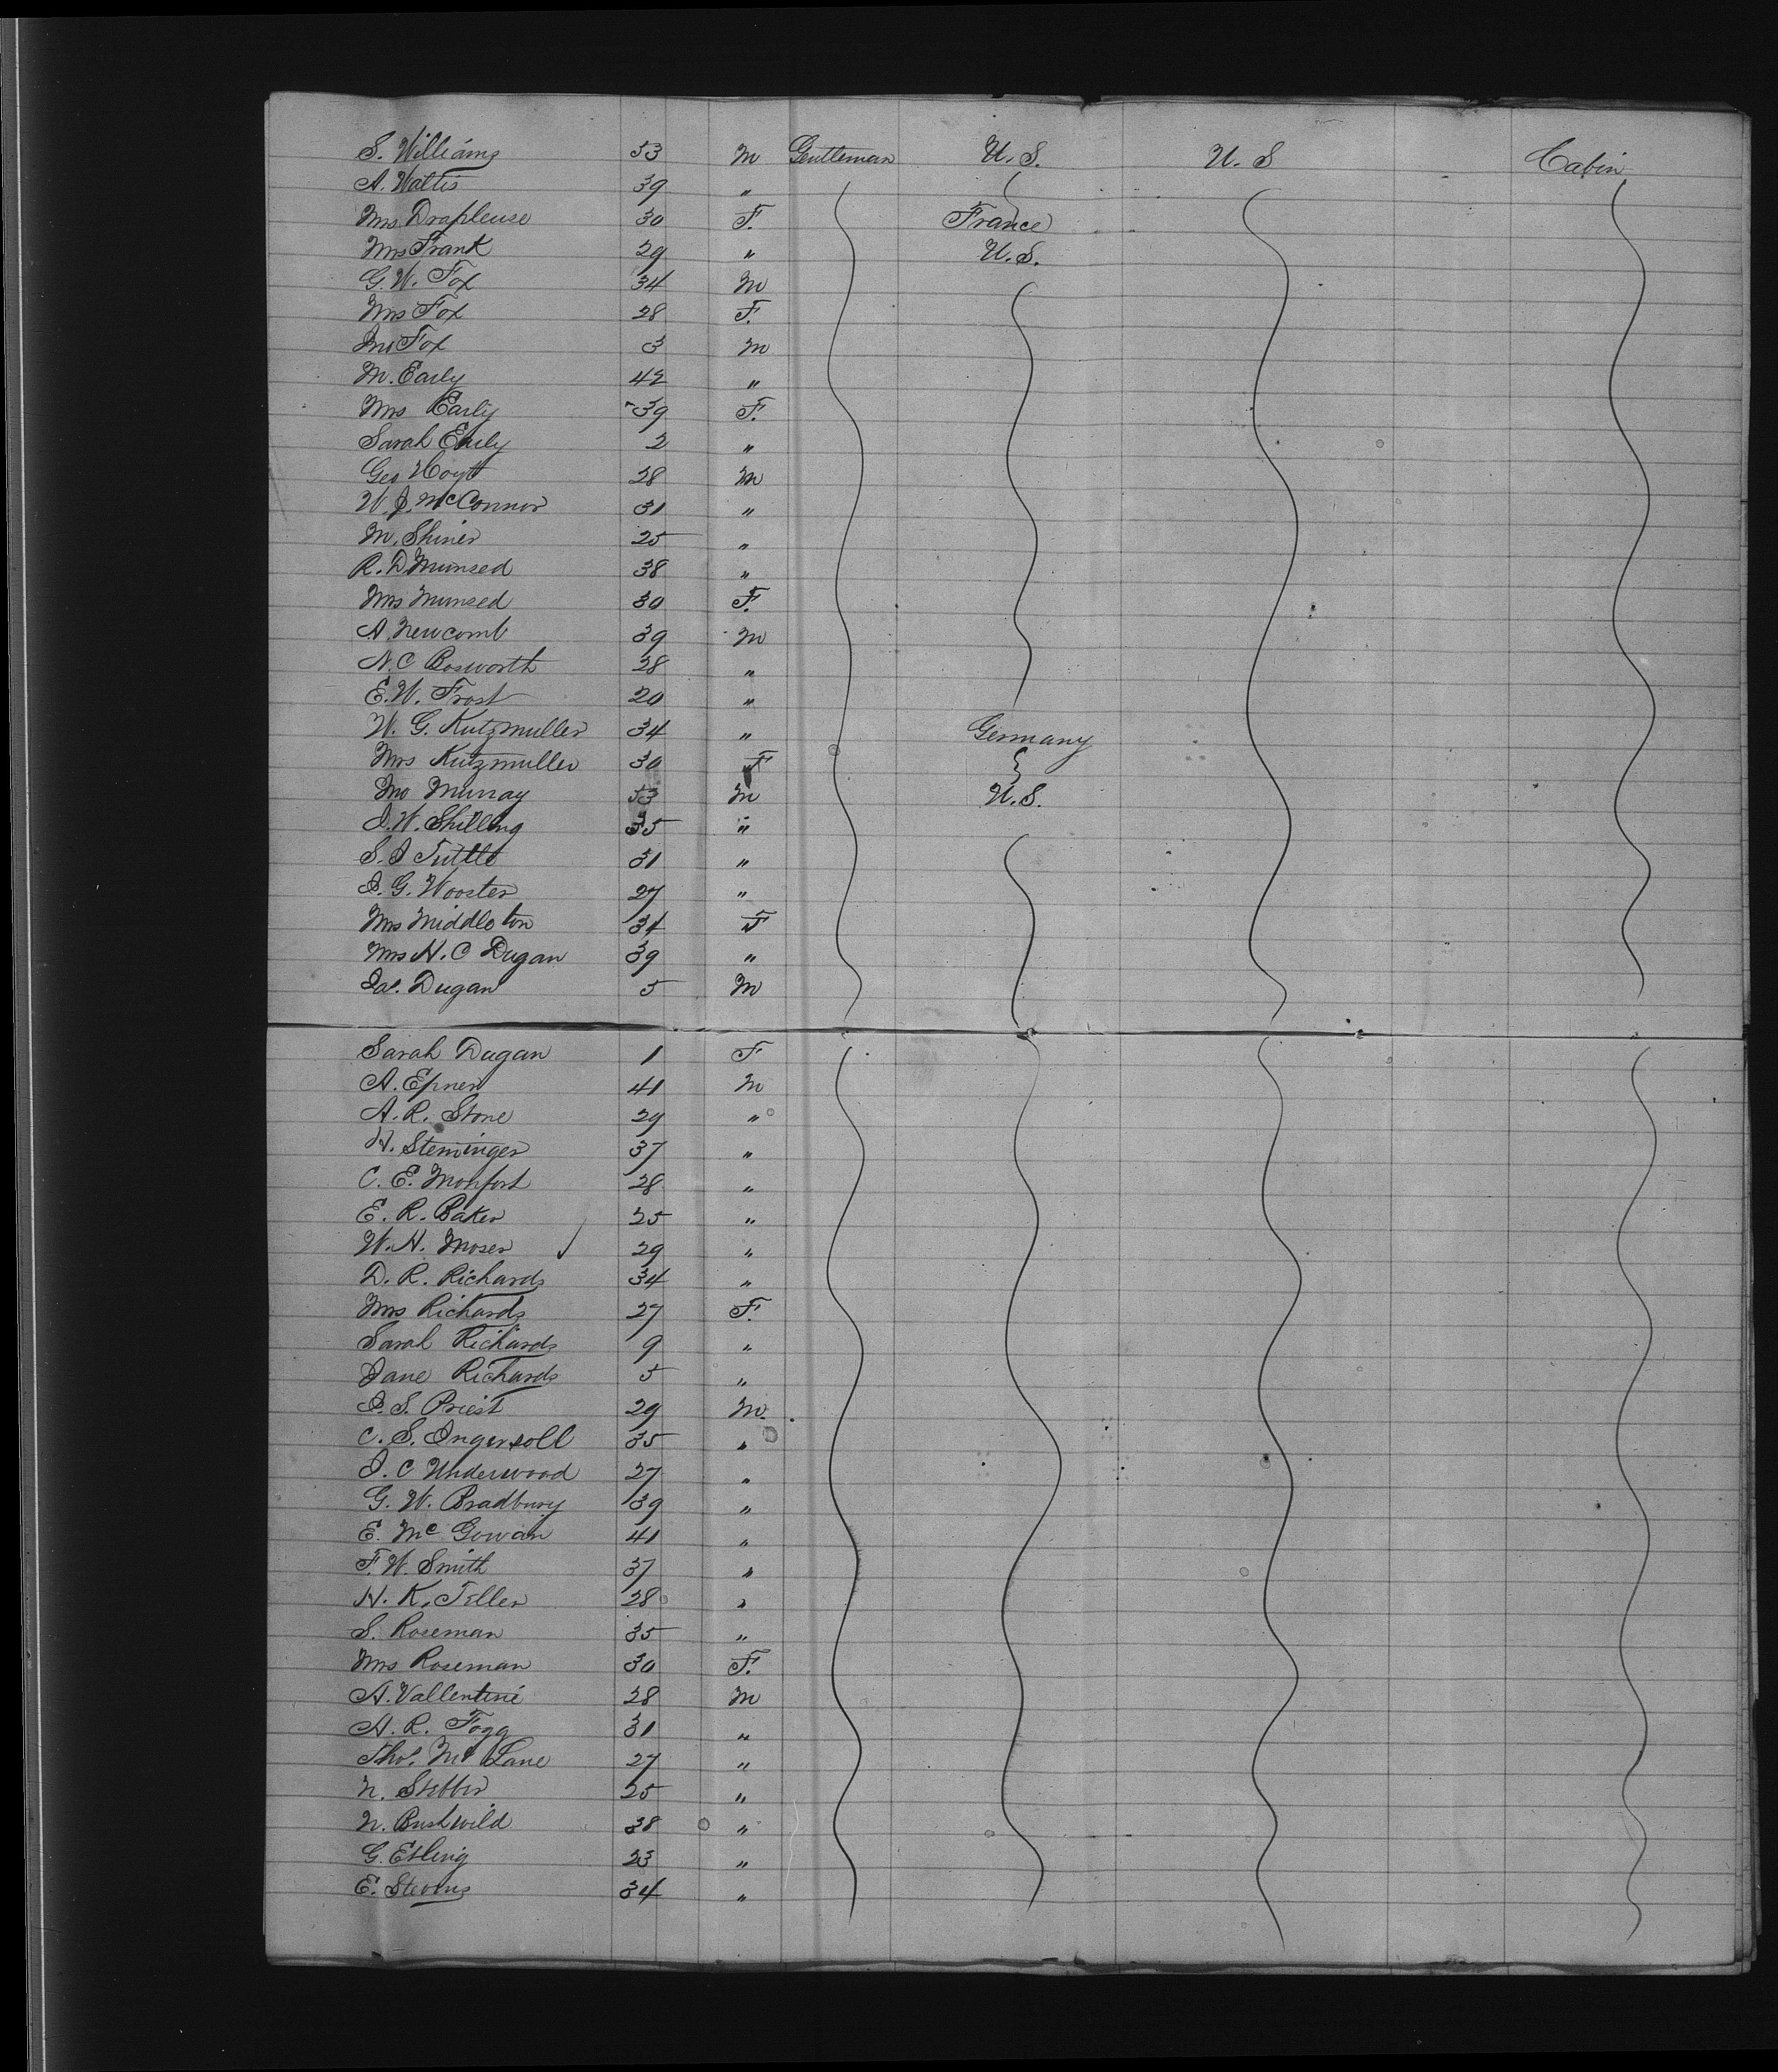 S. Williams 53 M Gentleman U. S. U. S Cabin
A. Wattis 39 "
Mrs Drapleuse 30 F. France
Mrs Frank 29 " U. S.
G. W. Fox 34 M
Mrs Fox 28 F.
Fox 3 M
M. Early 42 "
Mrs Early 39 F.
Sarah Early 2 "
Geo Hoyt 28 M
W. J. McConnor 31 "
M. Shiner 25 "
R. D Munsed 38 "
Mrs Munsed 30 F.
A. Newcomb 39 M
N. C Bosworth 28 "
E. W. Frost 20 "
W. G. Kutzmuller 34 " Germany
Mrs Kutzmuller 30 F
Murray 53 M U. S.
J. W. Shilling 35 "
S. J Tuttle 31 "
J. G. Wooster 27 "
Mrs Middleton 34 F
Mrs H. C Dugan 39 "
Jas. Dugan 5 M
Sarah Dugan 1 F
A. Epner 41 M
A. R. Stone 29 "
H. Steininger 37 "
C. E. Monfort 28 "
E. R. Baker 25 "
W. H. Moser 29 "
D. R. Richards 34 "
Mrs Richards 27 F.
Sarah Richards 9 "
Jane Richards 5 "
J. S. Priest 29 M.
C. S. Ingersoll 35 "
J. C Underwood 27 "
G. W. Bradbury 39 "
E. Mc Gowan 41 "
F. W. Smith 37 "
H. K. Teller 28 "
S. Roseman 35 "
Mrs Roseman 30 F.
A. Vallentine 28 M
H. R. Fogg 31 "
Thos. Mc Lane 27 "
N. 25 "
N. Bushwild 38 "
G. Esling 23 "
E. Stevens 34 "